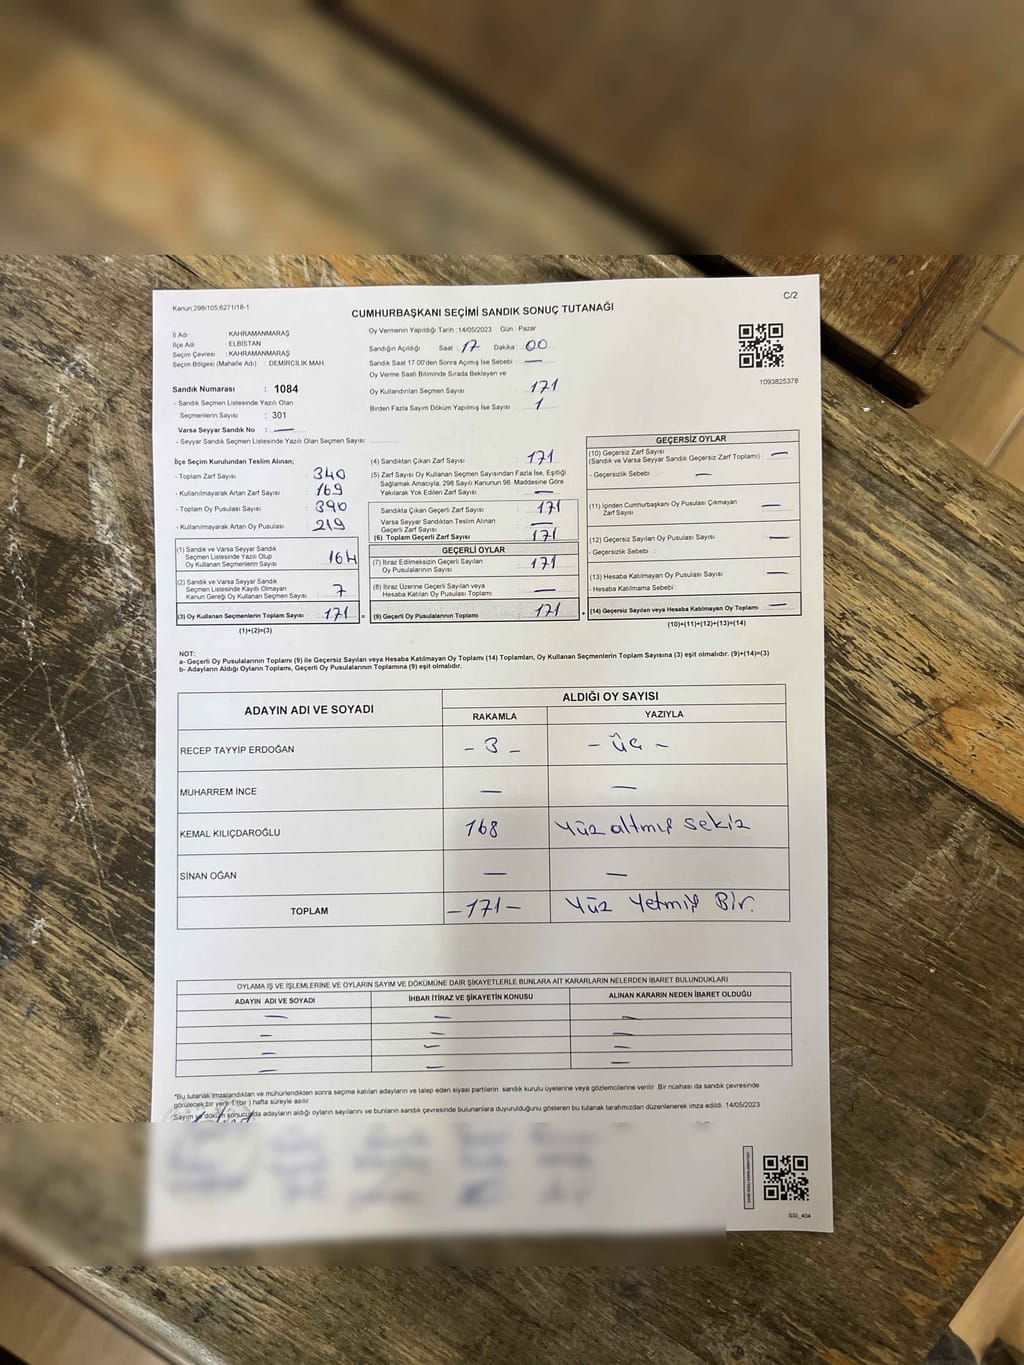 Kanun 298/105,6271/18-1
C/2
CUMHURBAŞKANI SEÇİMİ SANDIK SONUÇ TUTANAĞI
İl Adı : KAHRAMANMARAŞ
İlçe Adı : ELBİSTAN
Seçim Çevresi : KAHRAMANMARAŞ
Seçim Bölgesi (Mahalle Adı) : DEMİRCİLİK MAH.
Oy Vermenin Yapıldığı Tarih :14/05/2023 Gün : Pazar
Sandığın Açıldığı Saat : 17 Dakika : 00
Sandık Saat 17:00'den Sonra Açılmış İse Sebebi : —
Oy Verme Saati Bitiminde Sırada Bekleyen ve
Oy Kullandırılan Seçmen Sayısı : 171
Birden Fazla Sayım Döküm Yapılmış İse Sayısı : 1
1093825378
Sandık Numarası : 1084
- Sandık Seçmen Listesinde Yazılı Olan
Seçmenlerin Sayısı : 301
Varsa Seyyar Sandık No : —
- Seyyar Sandık Seçmen Listesinde Yazılı Olan Seçmen Sayısı :
İlçe Seçim Kurulundan Teslim Alınan;
- Toplam Zarf Sayısı : 340
- Kullanılmayarak Artan Zarf Sayısı : 169
- Toplam Oy Pusulası : 390
- Kullanılmayarak Artan Oy Pusulası : 219
(1) Sandık ve Varsa Seyyar Sandık
Seçmen Listesinde Yazılı Olup
Oy Kullanan Seçmenlerin Sayısı : 164
(2) Sandık ve Varsa Seyyar Sandık
Seçmen Listesinde Kayıtlı Olmayan
Kanun Gereği Oy Kullanan Seçmen Sayısı : 7
(3) Oy Kullanan Seçmenlerin Toplam Sayısı : 171
(1)+(2)=(3)
(4) Sandıktan Çıkan Zarf Sayısı : 171
(5) Zarf Sayısı Oy Kullanan Seçmen Sayısından Fazla İse, Eşitliği
Sağlamak Amacıyla; 298 Sayılı Kanunun 98. Maddesine Göre
Yakılarak Yok Edilen Zarf Sayısı : —
Sandıkta Çıkan Geçerli Zarf Sayısı : 171
Varsa Seyyar Sandıktan Teslim Alınan
Geçerli Zarf Sayısı : —
(6) Toplam Geçerli Zarf Sayısı : 171
GEÇERLİ OYLAR
(7) İtiraz Edilmeksizin Geçerli Sayılan
Oy Pusulalarının Sayısı : 171
(8) İtiraz Üzerine Geçerli Sayılan veya
Hesaba Katılan Oy Pusulası Toplamı : —
(9) Geçerli Oy Pusulalarının Toplamı : 171
GEÇERSİZ OYLAR
(10) Geçersiz Zarf Sayısı
(Sandık ve Varsa Seyyar Sandık Geçersiz Zarf Toplamı) : —
- Geçersizlik Sebebi : —
(11) İçinden Cumhurbaşkanı Oy Pusulası Çıkmayan
Zarf Sayısı : —
(12) Geçersiz Sayılan Oy Pusulası Sayısı : —
- Geçersizlik Sebebi :
(13) Hesaba Katılmayan Oy Pusulası Sayısı : —
- Hesaba Katılmama Sebebi :
(14) Geçersiz Sayılan veya Hesaba Katılmayan Oy Toplamı : —
(10)+(11)+(12)+(13)=(14)
NOT:
a- Geçerli Oy Pusulalarının Toplamı (9) ile Geçersiz Sayılan veya Hesaba Katılmayan Oy Toplamı (14) Toplamları, Oy Kullanan Seçmenlerin Toplam Sayısına (3) eşit olmalıdır. (9)+(14)=(3)
b- Adayların Aldığı Oyların Toplamı, Geçerli Oy Pusulalarının Toplamına (9) eşit olmalıdır.
ADAYIN ADI VE SOYADI
ALDIĞI OY SAYISI
RAKAMLA YAZIYLA
RECEP TAYYİP ERDOĞAN - 3 - - Üç -
MUHARREM İNCE — —
KEMAL KILIÇDAROĞLU 168 Yüz altmış sekiz
SİNAN OĞAN — —
TOPLAM -171- Yüz Yetmiş Bir.
OYLAMA İŞ VE İŞLEMLERİNE VE OYLARIN SAYIM VE DÖKÜMÜNE DAİR ŞİKAYETLERLE BUNLARA AİT KARARLARIN NELERDEN İBARET BULUNDUKLARI
ADAYIN ADI VE SOYADI İHBAR İTİRAZ VE ŞİKAYETİN KONUSU ALINAN KARARIN NEDEN İBARET OLDUĞU
— — —
— — —
— — —
— — —
*Bu tutanak imzalandıktan ve mühürlendikten sonra seçime katılan adayların ve talep eden siyasi partilerin sandık kurulu üyelerine veya gözlemcilerine verilir. Bir nüshası da sandık çevresinde
görülecek bir yere 1 (bir) hafta süreyle asılır.
Sayım ve döküm sonucunda adayların aldığı oyların sayılarını ve bunların sandık çevresinde bulunanlara duyurulduğunu gösteren bu tutanak tarafımızdan düzenlenerek imza edildi. 14/05/2023